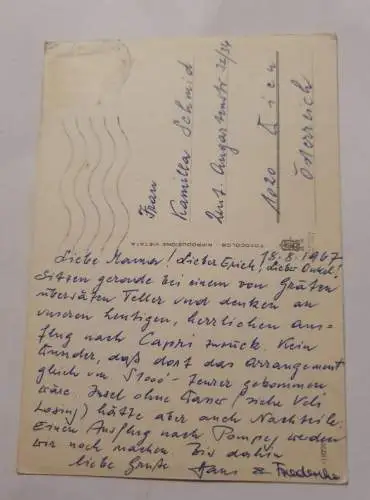 18.8.1967
Liebe Mama! Lieber Erich! Lieber Onkel!
Sitzen gerade bei einem von Gräten
übersäten Teller und denken an
unseren heutigen, herrlichen Aus-
flug nach Capri zurück. Kein
Wunder, daß dort das Arrangement
gleich um S 1000.- teurer gekommen
wäre. Insel ohne Wasser (siehe Veli
Losinj) hätte aber auch Nachteile.
Einen Ausflug nach Pompej werden
wir noch machen. Bis dahin
liebe Grüße Hans
Frau
Kamilla Schmid
Unt. Augartenstr. 32/34
1020 Wien
Österreich
FOTOCOLOR - RIPRODUZIONE VIETATA